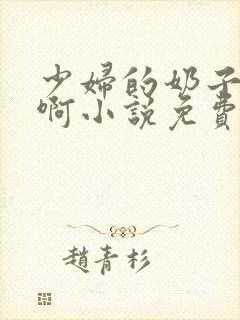 少婦的奶子
啊小說免費
趙青杉